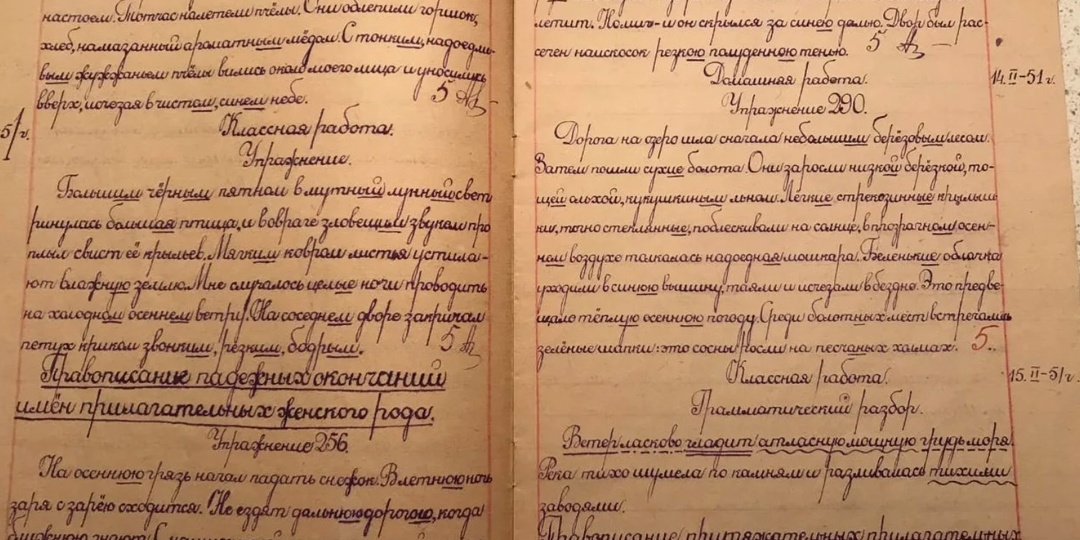 настоем. Тотчас налетели пчёлы. Они облепили горшок,
хлеб, намазанный ароматным мёдом. С тонким, надоедли-
вым жужжаньем пчёлы вились около моего лица и уносились
вверх, исчезая в чистом, синем небе.
5
51 г.
Классная работа.
Упражнение.
Большим чёрным пятном в мутный лунный свет
ринулась большая птица, и в овраге зловещим звуком про
плыл свист её крыльев. Мягким ковром листья устила-
ют влажную землю. Мне случалось целые ночи проводить
на холодном осеннем ветру. На соседнем дворе закричал
петух криком звонким, резким, бодрым.
5
Правописание падежных окончаний
имён прилагательных женского рода.
Упражнение 256.
На осеннюю грязь начал падать снежок. В летнюю ночь
заря с зарёю сходится. Не ездят дальнюю дорогою, когда
ближнюю знают.
летит. Комич- и он скрылся за синею далью. Двор был рас-
сечен наискосок резкою полуденною тенью.
5
Домашняя работа.
14.II-51 г.
Упражнение 290.
Дорога на озеро шла сначала небольшим берёзовым лесом.
Затем пошли сухие болота. Они заросли низкой берёзкой, то-
щей ольхой, кукушкиным льном. Легкие стрекозинные крылыш
ки, точно стеклянные, поблескивали на солнце, в прозрачном, осен-
нем воздухе толкалась надоедная мошкара. Беленькие облачка
уходили в синюю вышину, таяли и исчезали в бездне. Это предве-
щало тёплую осеннюю погоду. Среди болотных мест встречались
зелёные шапки: это сосны росли на песчаных холмах.
5.
Классная работа.
15.II-51 г.
Грамматический разбор.
Ветер ласково гладит атласную мощную грудь моря.
Река тихо шумела по камням и разливалась тихими
заводями.
Правописание притяжательных прилагательных